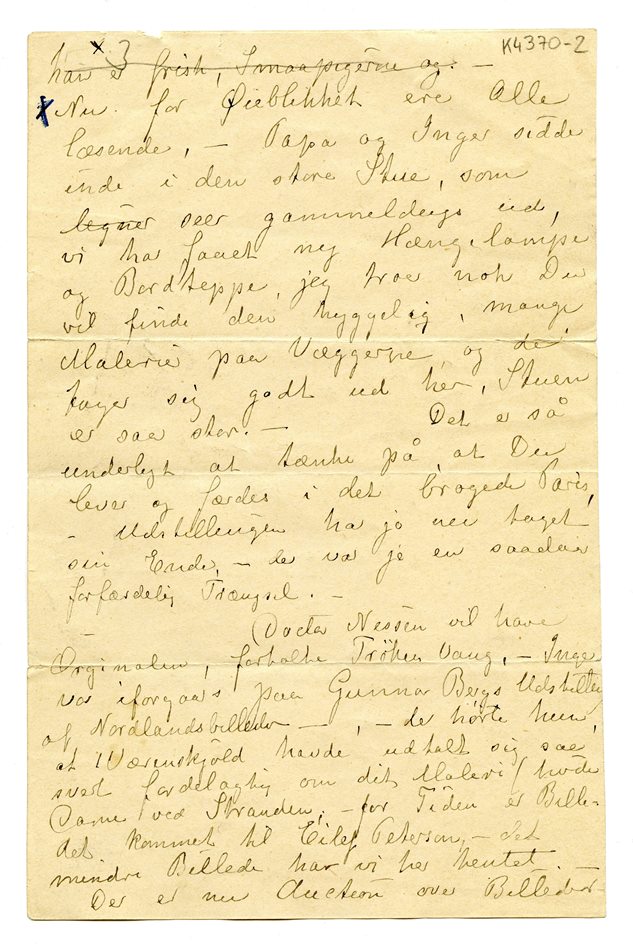 K4370-2
x 3
han er frisk, Smaapigerne og. —
x Nu for Øieblikket ere Alle
læsende, — Papa og Inger sidde
inde i den store Stue, som
ligner seer gammeldags ud,
vi ha faaet ny Hængelampe
og Bordteppe, jeg troer nok Du
vil finde den hyggelig, mange
Malerier paa Væggerne og de
tager sig godt ud her, Stuen
er saa stor. — Det er så
underligt at tænke på at Du
lever og færdes i det brogede Paris,
— Udstillingen ha jo nu taget
sin Ende, — der var jo en saadan
forfærdelig Trængsel. —
(Doctor Nessen vil have
Orginalen, fortalte Frøken Vang, — Inge
var iforgaars paa Gunnar Bergs Udstilling
af Nordlandsbilleder —, — der hørte hun,
at Wærenskjold havde udtalt sig saa
svært fordelagtig om dit Maleri (hvide
Dame ved Stranden, — for Tiden er Bille-
det kommet til Eilef Peterson, — det
mindre Billede har vi her hentet. —
Der er nu Auction over Billeder